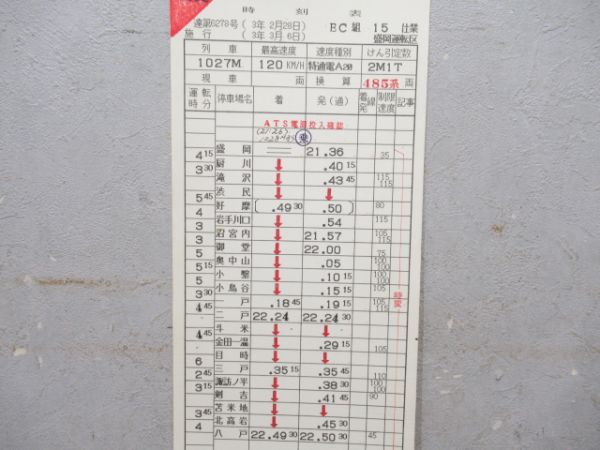 時 刻 表
達第6278号 ( 3年 2月28日)
施 行 ( 3年 3月 6日)
EC組 15 仕業
盛岡運転区
列 車 最高速度 速度種別 けん引定数
1027M 120KM/H 特通電A20 2M1T
現 車 両 換 算 485系 両
運転時分 停車場名 着 発(通) 着線発線 制限速度 記事
ATS電源投入確認
乗
盛 岡 21.36 35
4 15
厨 川 ↓ .40 15
3 30
滝 沢 ↓ .43 45 115
115
渋 民 ↓ ↓
5 45
好 摩 〔 .49 30 .50 〕 80
4
岩手川口 ↓ .54
3
沼宮内 ↓ 21.57 105
115
3
御 堂 ↓ 22.00 75
5
奥中山 ↓ .05 100
100
5 15
小 繋 ↓ .10 15 100
115
5
小鳥谷 ↓ .15 15 105
3 30
一 戸 .18 45 .19 15 105
115
4 45
二 戸 22.24 22.24 30
斗 米 ↓ ↓
4 45
金田一温 ↓ .29 15 105
目 時 ↓ ↓
6
三 戸 .35 15 .35 45
2 45
諏訪ノ平 ↓ .38 30 110
100
100
3 15
剣 吉 ↓ .41 45 90
苫米地 ↓ ↓
3 45
北高岩 ↓ .45 30
4
八 戸 22.49 30 22.50 30 45